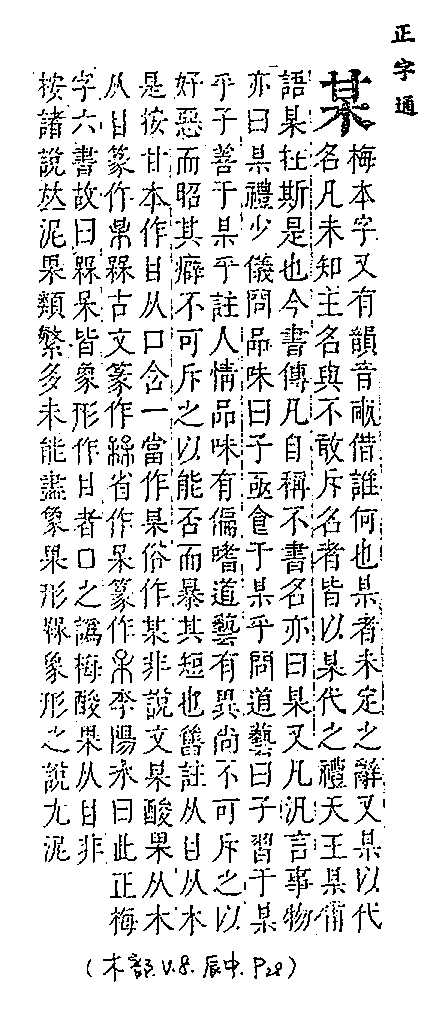 正字通
某 梅本字又有韻音畮借誰何也某者未定之辭又某以代
名凡未知主名與不敢斥名者皆以某代之禮天王某甫
語某在斯是也今書傳凡自稱不書名亦曰某又凡汎言事物
亦曰某禮少儀問品味曰子亟食于某乎問道藝曰子習于某
乎子善于某乎註人情品味有偏嗜道藝有異尚不可斥之以
好惡而昭其癖不可斥之以能否而暴其短也舊註从甘从木
是按甘本作甘从口含一當作某俗作某非說文某酸果从木
从甘篆作槑古文篆作省作呆篆作李陽冰曰此正梅
字六書故曰槑呆皆象形作甘者口之譌梅酸果从甘非
按諸說夶泥果類繁多未能盡象果形槑象形之說尤泥
(木部.V.8.辰中.P28)